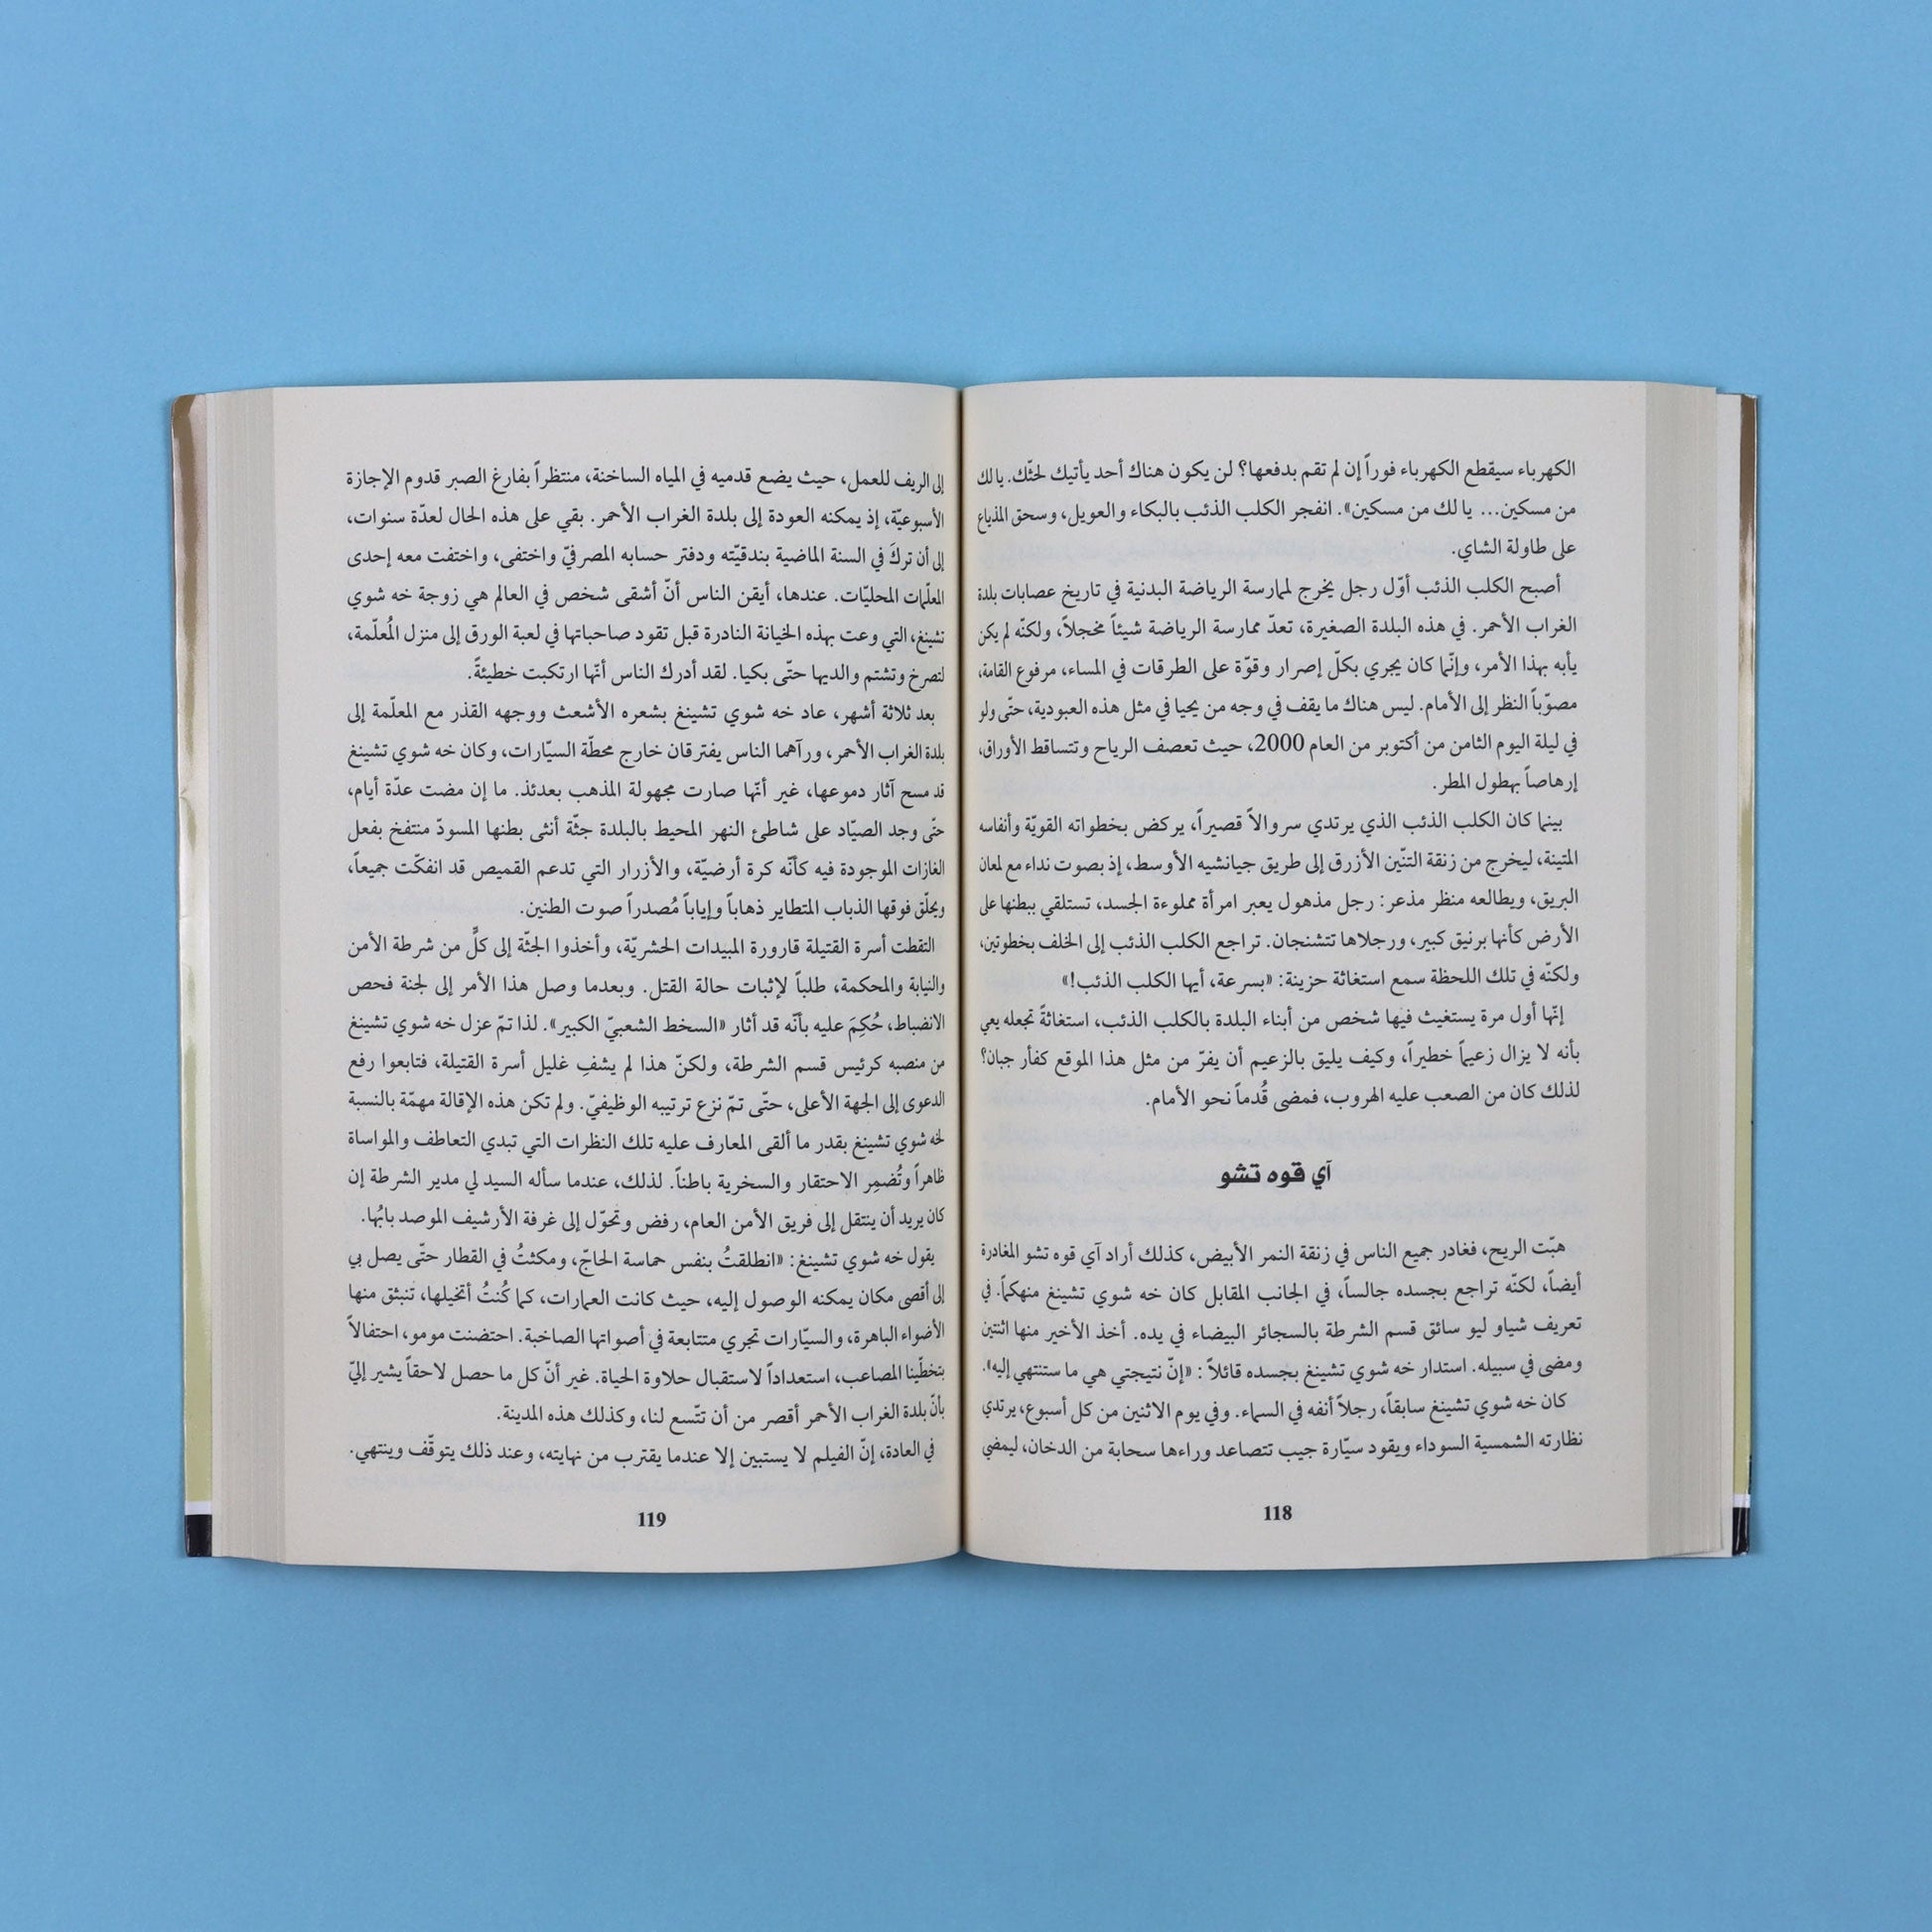 الكهرباء سيقطع الكهرباء فوراً إن لم تقم بدفعها؟ لن يكون هناك أحد يأتيك لحثّك. يا لك
من مسكين... يا لك من مسكين». انفجر الكلب الذئب بالبكاء والعويل، وسحق المذياع
على طاولة الشاي.
أصبح الكلب الذئب أوّل رجل يخرج لممارسة الرياضة البدنية في تاريخ عصابات بلدة
الغراب الأحمر. في هذه البلدة الصغيرة، تعدّ ممارسة الرياضة شيئاً مخجلاً، ولكنّه لم يكن
يأبه بهذا الأمر، وإنّما كان يجري بكلّ إصرار وقوّة على الطرقات في المساء، مرفوع القامة،
مصوّباً النظر إلى الأمام. ليس هناك ما يقف في وجه من يحيا في مثل هذه العبودية، حتّى ولو
في ليلة اليوم الثامن من أكتوبر من العام 2000، حيث تعصف الرياح وتتساقط الأوراق،
إرهاصاً بهطول المطر.
بينما كان الكلب الذئب الذي يرتدي سروالاً قصيراً، يركض بخطواته القويّة وأنفاسه
المتينة، ليخرج من زنقة التنّين الأزرق إلى طريق جيانشيه الأوسط، إذ بصوت نداء مع لمعان
البريق، ويطالعه منظر مذعر: رجل مذهول يعبر امرأة مملوءة الجسد، تستلقي ببطنها على
الأرض كأنها برنيق كبير، ورجلاها تتشنجان. تراجع الكلب الذئب إلى الخلف بخطوتين،
ولكنّه في تلك اللحظة سمع استغاثة حزينة: «بسرعة، أيها الكلب الذئب!»
إنّها أول مرة يستغيث فيها شخص من أبناء البلدة بالكلب الذئب، استغاثةً تجعله يعي
بأنه لا يزال زعيماً خطيراً، وكيف يليق بالزعيم أن يفرّ من مثل هذا الموقع كفأر جبان؟
لذلك كان من الصعب عليه الهروب، فمضى قُدماً نحو الأمام.
آي قوه تشو
هبّت الريح، فغادر جميع الناس في زنقة النمر الأبيض، كذلك أراد آي قوه تشو المغادرة
أيضاً، لكنّه تراجع بجسده جالساً، في الجانب المقابل كان خه شوي تشينغ منهكماً. في
تعريف شياو ليو سائق قسم الشرطة بالسجائر البيضاء في يده. أخذ الأخير منها اثنتين
ومضى في سبيله. استدار خه شوي تشينغ بجسده قائلاً: «إنّ نتيجتي هي ما ستنتهي إليه».
كان خه شوي تشينغ سابقاً، رجلاً أنفه في السماء. وفي يوم الاثنين من كل أسبوع، يرتدي
نظارته الشمسية السوداء ويقود سيّارة جيب تتصاعد وراءها سحابة من الدخان، ليمضي
118
إلى الريف للعمل، حيث يضع قدميه في المياه الساخنة، منتظراً بفارغ الصبر قدوم الإجازة
الأسبوعيّة، إذ يمكنه العودة إلى بلدة الغراب الأحمر. بقي على هذه الحال لعدّة سنوات،
إلى أن تركَ في السنة الماضية بندقيّته ودفتر حسابه المصرفيّ واختفى، واختفت معه إحدى
المعلّمات المحليّات. عندها، أيقن الناس أنّ أشقى شخص في العالم هي زوجة خه شوي
تشينغ، التي وعت بهذه الخيانة النادرة قبل تقود صاحباتها في لعبة الورق إلى منزل المُعلّمة،
لتصرخ وتشتم والديها حتّى بكيا. لقد أدرك الناس أنّها ارتكبت خطيئةً.
بعد ثلاثة أشهر، عاد خه شوي تشينغ بشعره الأشعث ووجهه القذر مع المعلّمة إلى
بلدة الغراب الأحمر، ورآهما الناس يفترقان خارج محطّة السيّارات، وكان خه شوي تشينغ
قد مسح آثار دموعها، غير أنّها صارت مجهولة المذهب بعدئذ. ما إن مضت عدّة أيام،
حتّى وجد الصيّاد على شاطئ النهر المحيط بالبلدة جثّة أنثى بطنها المسودّ منتفخ بفعل
الغازات الموجودة فيه كأنّه كرة أرضيّة، والأزرار التي تدعم القميص قد انفكّت جميعاً،
ويحلّق فوقها الذباب المتطاير ذهاباً وإياباً مُصدراً صوت الطنين.
التقطت أسرة القتيلة قارورة المبيدات الحشريّة، وأخذوا الجثّة إلى كلٍّ من شرطة الأمن
والنيابة والمحكمة، طلباً لإثبات حالة القتل. وبعدما وصل هذا الأمر إلى لجنة فحص
الانضباط، حُكِمَ عليه بأنّه قد أثار «السخط الشعبيّ الكبير». لذا تمّ عزل خه شوي تشينغ
من منصبه كرئيس قسم الشرطة، ولكنّ هذا لم يشفِ غليل أسرة القتيلة، فتابعوا رفع
الدعوى إلى الجهة الأعلى، حتّى تمّ نزع ترتيبه الوظيفيّ. ولم تكن هذه الإقالة مهمّة بالنسبة
لخه شوي تشينغ بقدر ما ألقى المعارف عليه تلك النظرات التي تبدي التعاطف والمواساة
ظاهراً وتُضمِر الاحتقار والسخرية باطناً. لذلك، عندما سأله السيد لي مدير الشرطة إن
كان يريد أن ينتقل إلى فريق الأمن العام، رفض وتحوّل إلى غرفة الأرشيف الموصد بابُها.
يقول خه شوي تشينغ: «انطلقتُ بنفس حماسة الحاجّ، ومكثتُ في القطار حتّى يصل بي
إلى أقصى مكان يمكنه الوصول إليه، حيث كانت العمارات، كما كُنتُ أتخيلها، تنبثق منها
الأضواء الباهرة، والسيّارات تجري متتابعة في أصواتها الصاخبة. احتضنت مومو، احتفالاً
بتخطّينا المصاعب، استعداداً لاستقبال حلاوة الحياة. غير أنّ كل ما حصل لاحقاً يشير إليّ
بأنّ بلدة الغراب الأحمر أقصر من أن تتّسع لنا، وكذلك هذه المدينة.
في العادة، إنّ الفيلم لا يستبين إلا عندما يقترب من نهايته، وعند ذلك يتوقّف وينتهي.
119